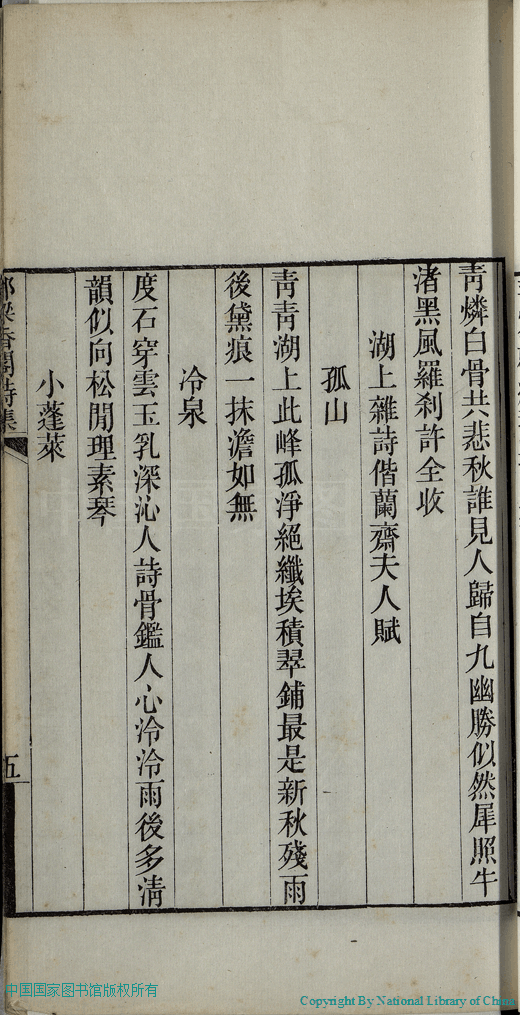 青燐白骨共悲秋誰見人歸自九幽勝似然犀照牛
渚黑風羅刹許全收
湖上雜詩偕蘭齋夫人賦
孤山
靑靑湖上此峰孤淨絕纖埃積翠鋪最是新秋殘雨
後黛痕一抹澹如無
冷泉
度石穿雲玉乳深沁人詩骨鑑人心泠泠雨後多淸
韻似向松閒理素琴
小蓬萊
香閣詩集
五
中国国家图书馆版权所有
Copyright By National Library of China